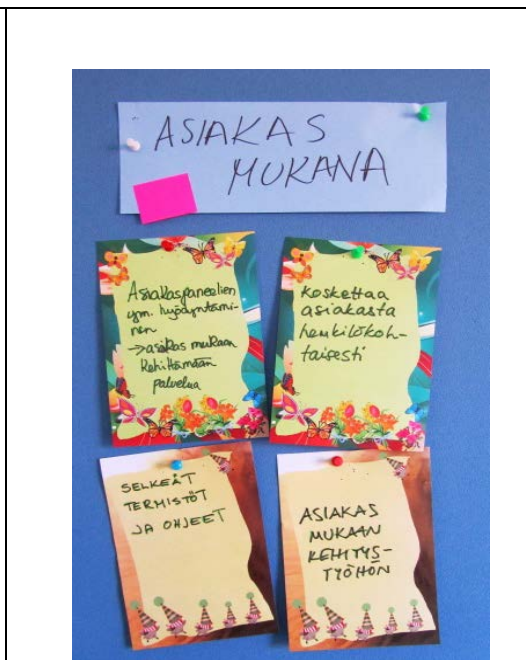 ASIAKAS
MUKANA
Asiakaspaneelien
ym. hyödyntämi-
nen
→ asiakas mukaan
kehittämään
palvelua
koskettaa
asiakasta
henkilökoh-
taisesti
SELKEÄT
TERMISTÖT
JA OHJEET
ASIAKAS
MUKAAN
KEHITYS-
TYÖHÖN